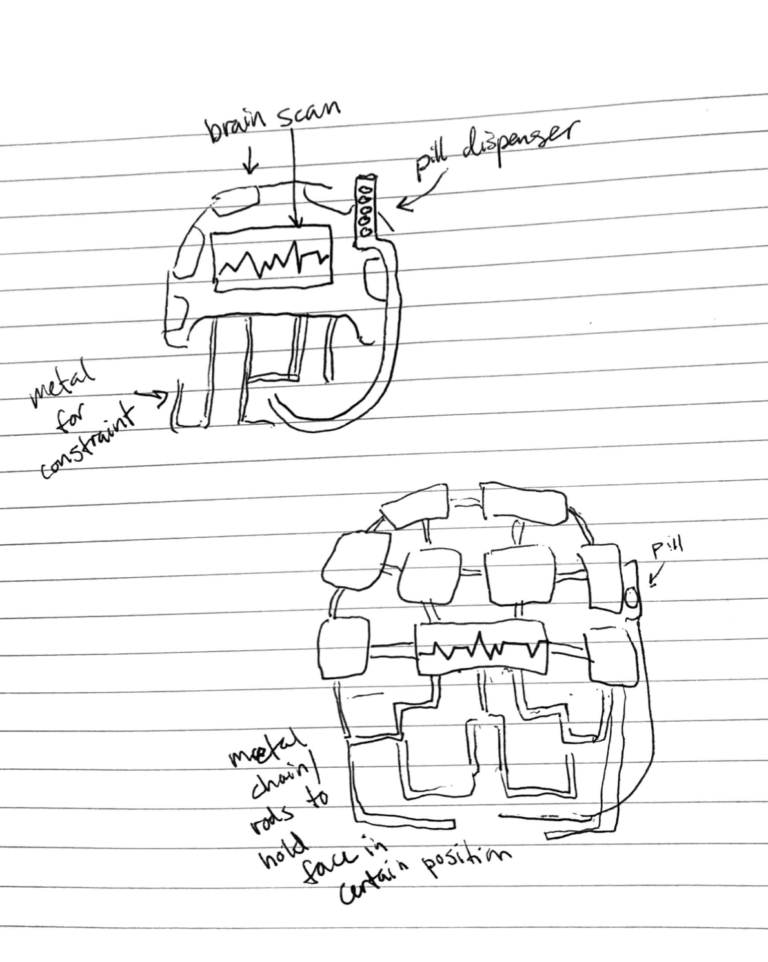 brain scan
pill dispenser
metal
for
constraint
pill
metal
chain/
rods to
hold
face in
certain position